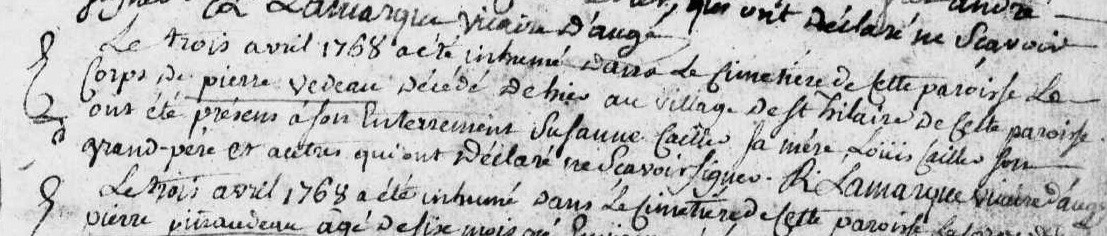 andré
R Lamarque vicaire d'augé qui ont déclaré ne sçavoir
Le trois avril 1768 a été inhumé dans Le Cimetiére de Cette paroisse Le
Corps de pierre vedeau décédé dehier au village de st hilaire de Cette paroisse
ont été présens a son Enterrement Susanne Cailler sa mére, Loüis Cailler son
grand-pére et autres qui ont déclaré ne Scavoir signer. R Lamarque vicaire d'augé
Le trois avril 1768 a été inhumé dans Le Cimetiére de Cette paroisse Le Corps de
pierre agé de six mois